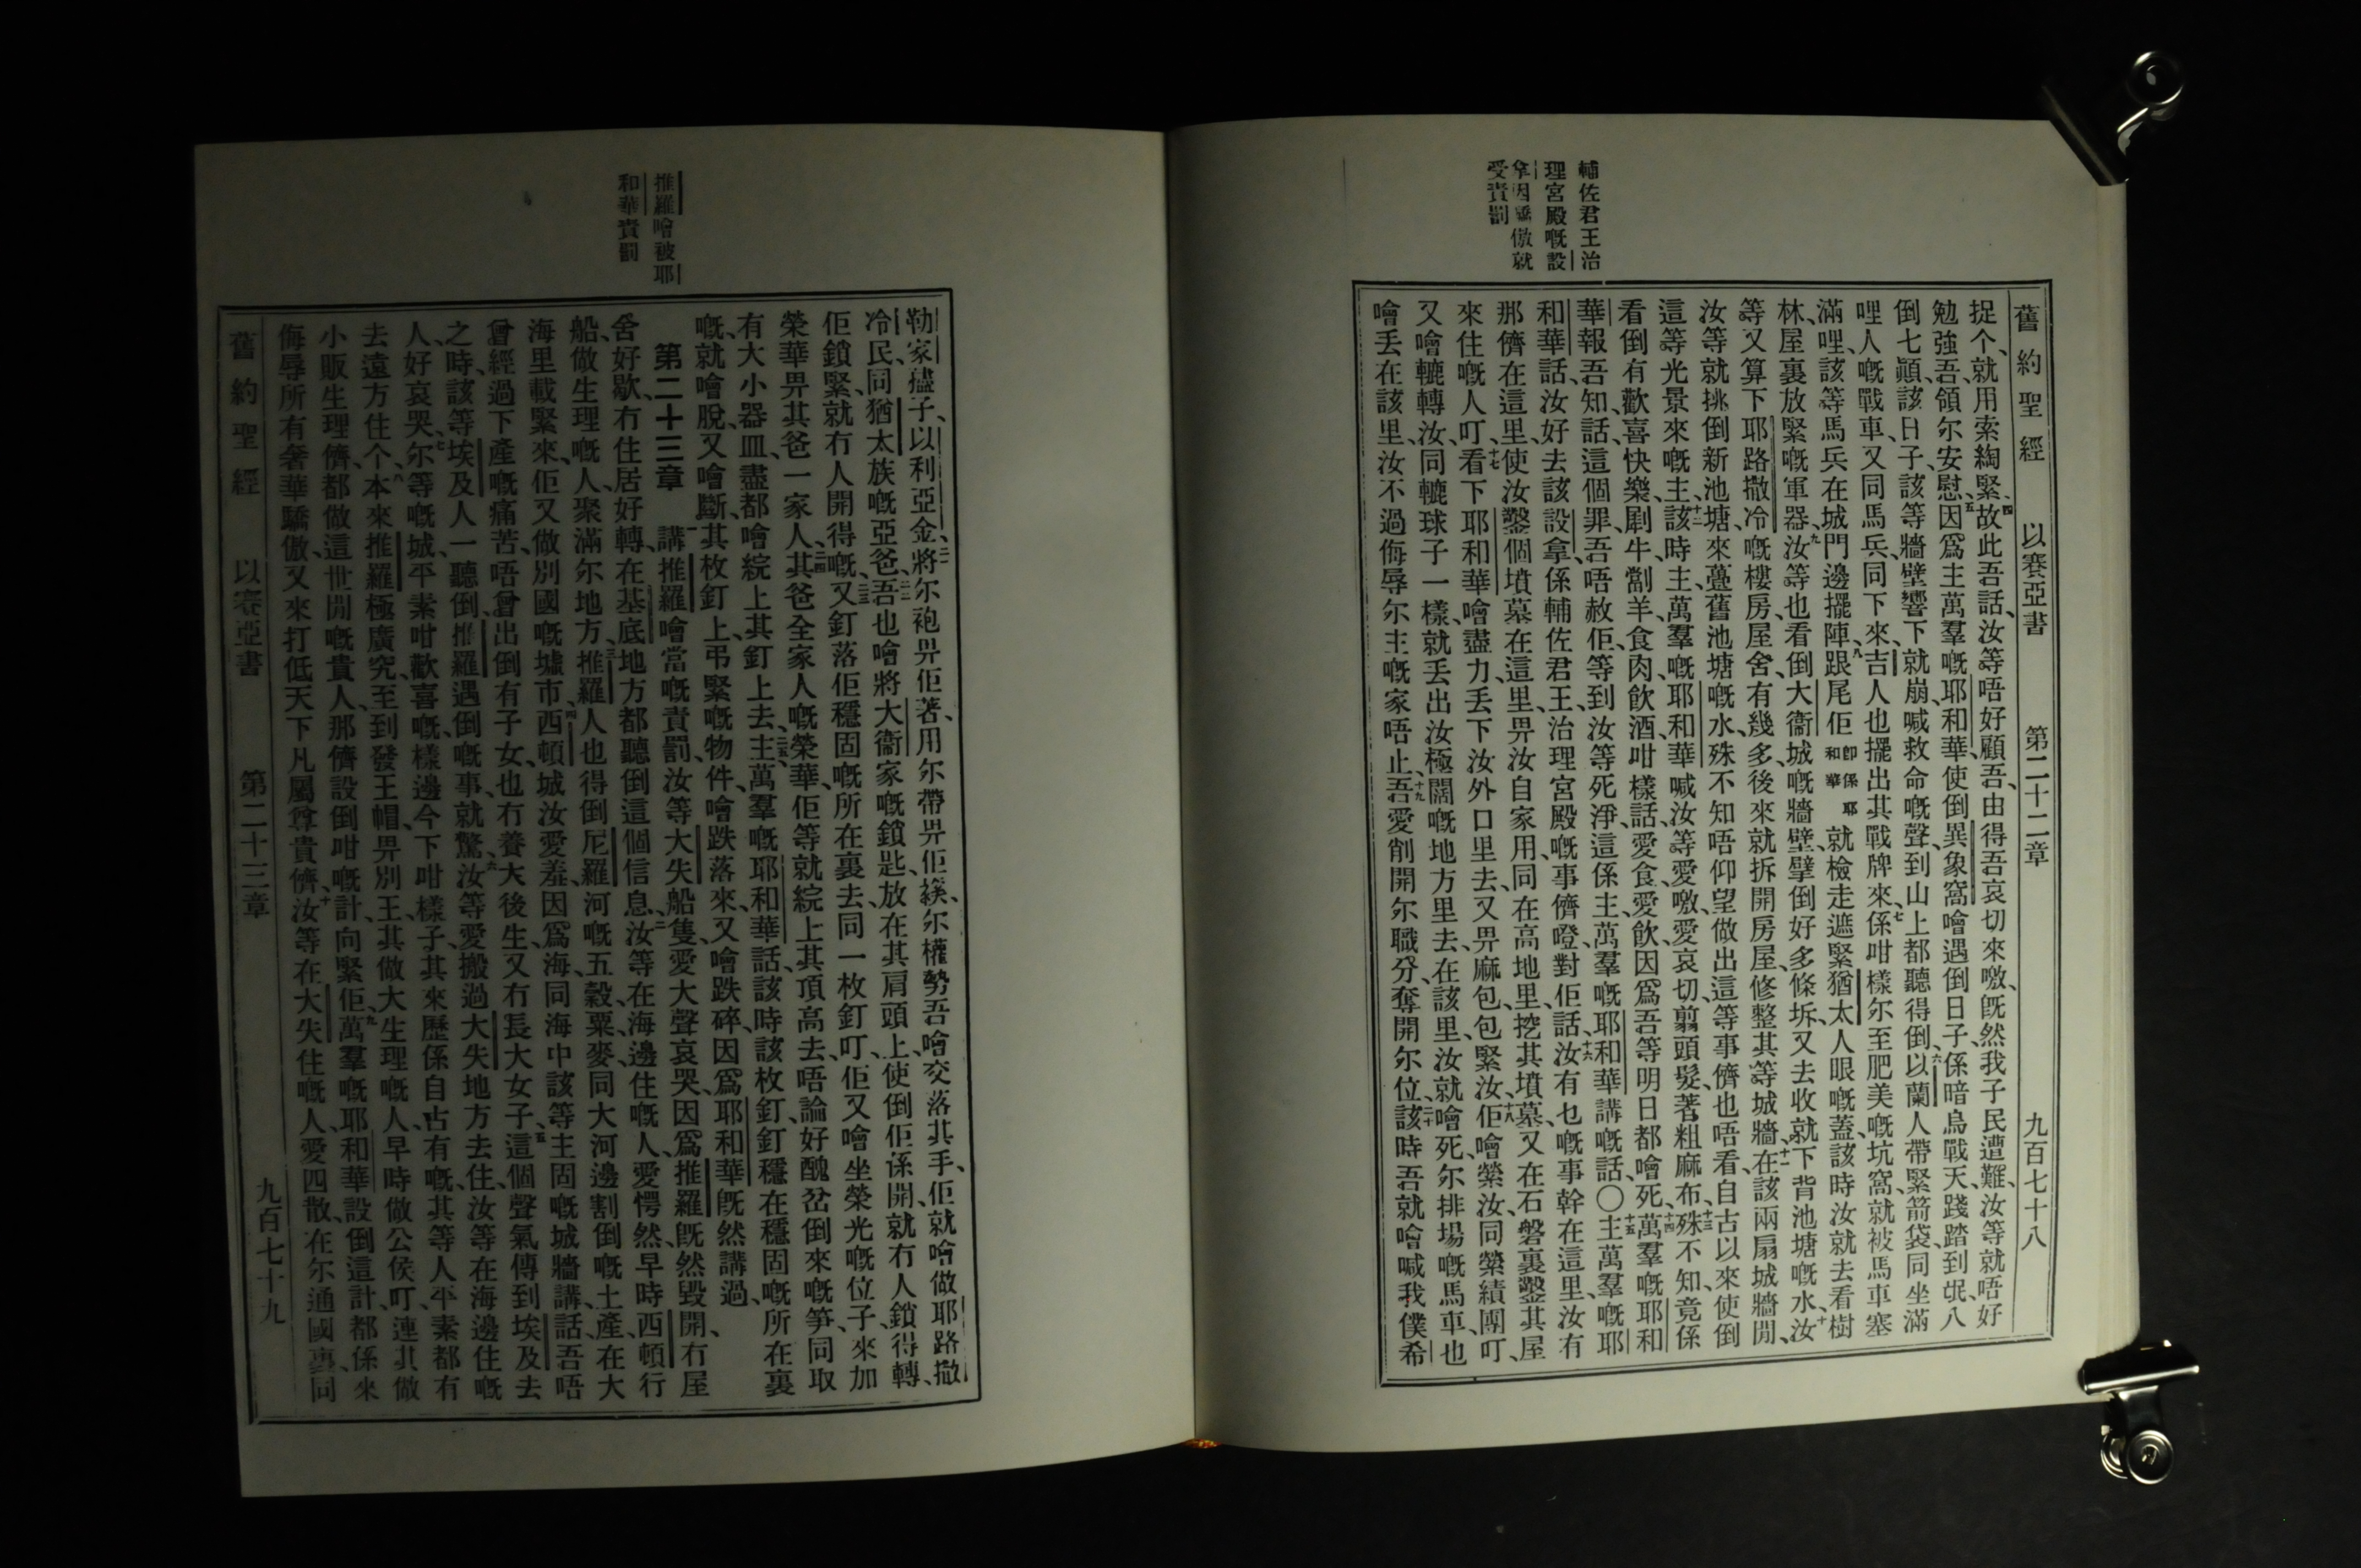 舊約聖經 以賽亞書 第二十二章 九百七十八
輔佐君王治
理宮殿嘅設
拿因驕傲就
受責罰
捉个、就用索綯緊、四故此吾話、汝等唔好顧吾、由得吾哀切來噭、旣然我子民遭難、汝等就唔好
勉強吾、領尔安慰、五因爲主萬羣嘅耶和華、使倒異象窩噲遇倒日子、係暗烏戰天、踐踏到氓、八
倒七顚、該日子、該等牆壁響下就崩、喊救命嘅聲、到山上都聽得倒、六以蘭人帶緊箭袋、同坐滿
哩人嘅戰車、又同馬兵、同下來、吉人也擺出其戰牌來、七係咁樣尔至肥美嘅坑窩、就被馬車塞
滿哩、該等馬兵在城門邊擺陣、八跟尾佢卽係耶和華就檢走遮緊猶太人眼嘅蓋、該時汝就去看樹
林屋裏放緊嘅軍器、九汝等也看倒大衞城嘅牆壁、擘倒好多條坼、又去收就下背池塘嘅水、十汝
等又算下耶路撒冷嘅樓房屋舍、有幾多、後來就拆開房屋、修整其等城牆、十一在該兩扇城牆閒、
汝等就挑倒新池塘來蘯舊池塘嘅水、殊不知唔仰望做出這等事儕、也唔看自古以來使倒
這等光景來嘅主、十二該時主、萬羣嘅耶和華、喊汝等愛噭、愛哀切、翦頭髮、著粗麻布、十三殊不知竟係
看倒有歡喜快樂、劚牛、劏羊、食肉飮酒、咁樣話、愛食、愛飮、因爲吾等明日都噲死、十四萬羣嘅耶和
華報吾知話、這個罪、吾唔赦佢、等到汝等死淨、這係主萬羣嘅耶和華講嘅話、〇十五主萬羣嘅耶
和華話、汝好去該設拿、係輔佐君王、治理宮殿嘅事儕、噔對佢話、十六汝有乜嘅事幹在這里、汝有
那儕在這里、使汝鑿個墳墓在這里、畀汝自家用、同在高地里、挖其墳墓、又在石磐裏鑿其屋
來住嘅人叮、十七看下耶和華噲盡力、丢下汝外口里去、又畀麻包、包緊汝、十八佢噲縈汝、同縈績團叮、
又噲轆轉汝、同轆球子一樣、就丢出汝極闊嘅地方里去、在該里、汝就噲死、尔排場嘅馬車、也
噲丢在該里、汝不過侮辱尔主嘅家唔止、十九吾愛削開尔職分、奪開尔位、二十該時吾就噲喊我僕希
推羅噲被耶
和華責罰
勒家㨢子、以利亞金、二一將尔袍畀佢著、用尔帶畀佢㩭、尔權勢吾噲交落其手、佢就噲做耶路撒
冷民、同猶太族嘅亞爸、二二吾也噲將大衞家嘅鎖匙、放在其肩頭上、使倒佢係開、就冇人鎖得轉、
佢鎖緊、就冇人開得嘅、二三又釘落佢穩固嘅所在裏去、同一枚釘叮、佢又噲坐榮光嘅位子、來加
榮華畀其爸一家人、二四其爸全家人嘅榮華、佢等就綜上其頂高去、唔論好醜岔倒來嘅笋、同取
有大小器皿、盡都噲綜上其釘上去、二五主萬羣嘅耶和華話、該時該枚釘、釘穩在穩固嘅所在裏
嘅、就噲脫、又噲斷、其枚釘上、弔緊嘅物件、噲跌落來、又噲跌碎、因爲耶和華旣然講過、
第二十三章 一講推羅噲當嘅責罰、汝等大失船隻、愛大聲哀哭、因爲推羅旣然毀開、冇屋
舍好歇、冇住居好轉、在基底地方、都聽倒這個信息、二汝等在海邊住嘅人、愛愕然、早時西頓行
船做生理嘅人、聚滿尔地方、三推羅人也得倒尼羅河嘅五穀粟麥、同大河邊割倒嘅土產、在大
海里載緊來、佢又做別國嘅墟市、四西頓城、汝愛羞、因爲海、同海中該等主固嘅城牆講話、吾唔
曾經過下產嘅痛苦、唔曾出倒有子女、也冇養大後生、又冇長大女子、五這個聲氣傳到埃及去
之時、該等埃及人一聽倒推羅遇倒嘅事、就驚、六汝等愛搬過大失地方去住、汝等在海邊住嘅
人、好哀哭、七尔等嘅城、平素咁歡喜嘅、樣邊今下咁樣子、其來歷係自古有嘅、其等人平素都有
去遠方住个、八本來推羅極廣究、至到發王帽、畀別王、其做大生理嘅人、早時做公侯叮、連其做
小販生理儕、都做這世閒嘅貴人、那儕設倒咁嘅計、向緊佢、九萬羣嘅耶和華、設倒這計、都係來
侮辱所有奢華驕傲、又來打低天下凡屬尊貴儕、十汝等在大失住嘅人、愛四散、在尔通國裏、同
舊約聖經 以賽亞書 第二十三章 九百七十九